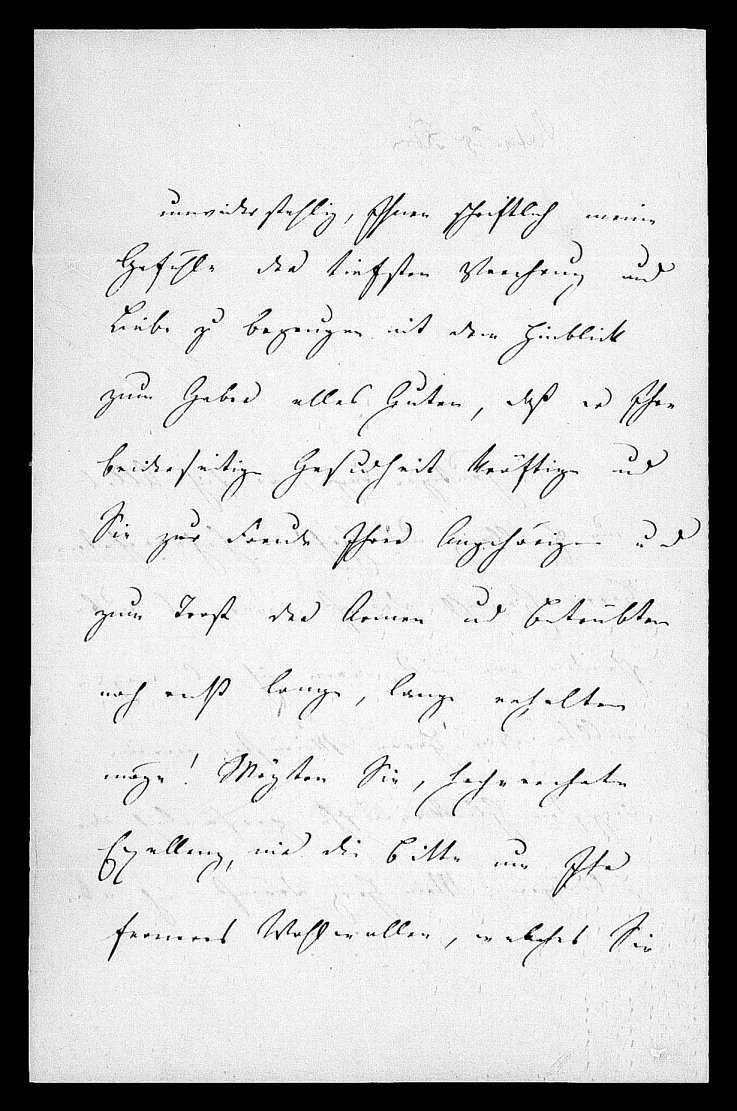 unwiderstehlig, Ihnen schriftlich meine
Gefühle der tiefsten Verehrung und
Liebe zu bezeugen mit dem Hinblick
zum Geber alles Guten, daß er Ihre
beiderseitige Gesundheit kräftige und
Sie zur Freude Ihrer Angehörigen und
zum Trost der Armen und Betrübten
noch recht lange, lange erhalten
möge! Möchten Sie, hochverehrte
Exzellenz, mir die Bitte um Ihr
ferneres Wohlwollen, welches Sie